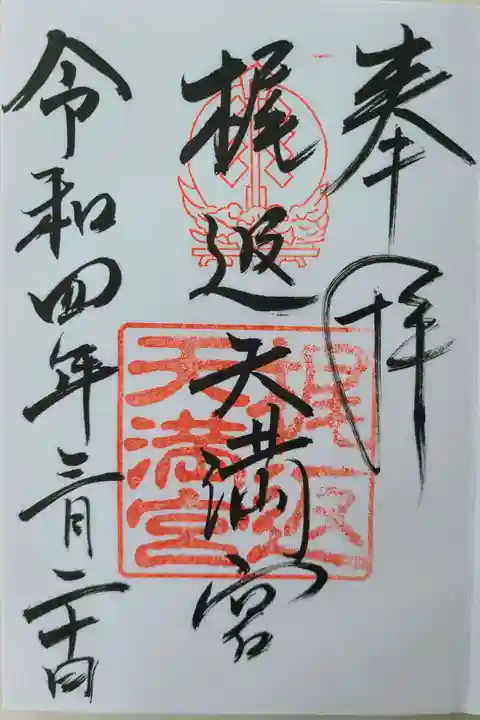 奉拝
梶返天満宮
梶返
天満宮
令和四年三月二十四日